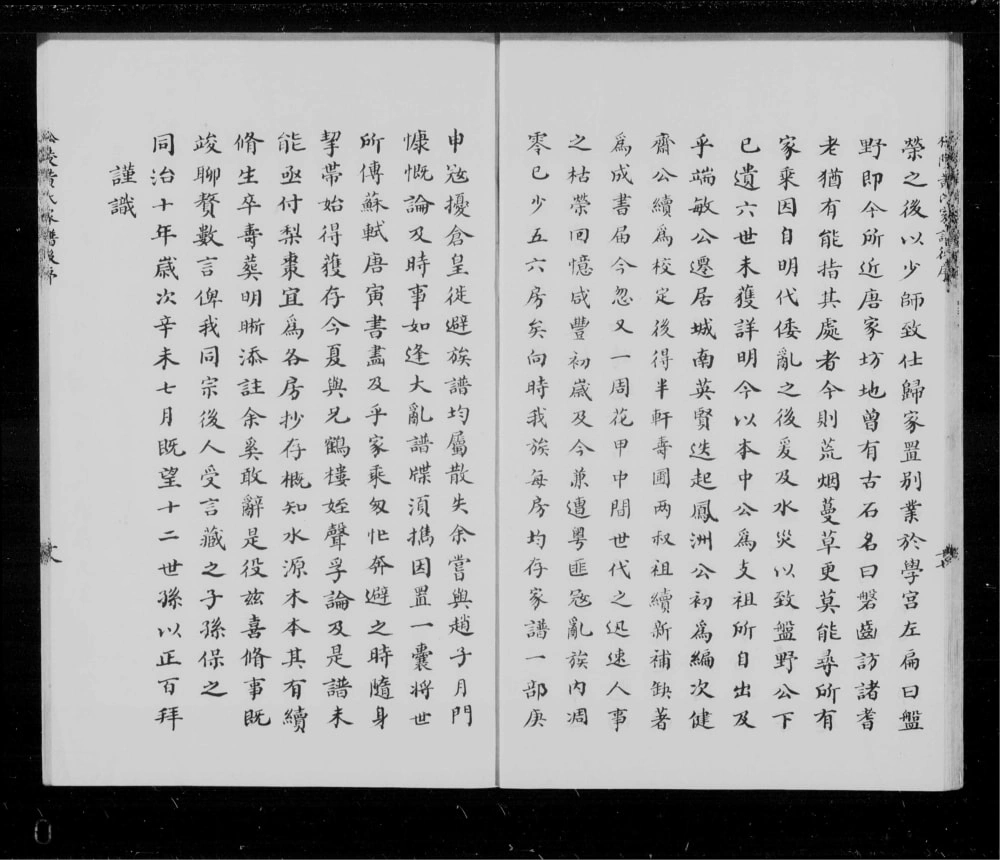 榮之後以少師致仕歸家置別業於學宮左扁曰盤
野即今所近唐家坊地曾有古石名曰磐齒訪諸耆
老猶有能指其處者今則荒烟蔓草更莫能尋所有
家乘因自明代倭亂之後爰及水災以致盤野公下
已遺六世未獲詳明今以本中公為支祖所自出及
乎端敏公遷居城南英賢迭起鳳洲公初為編次健
齋公續為校定後得半軒壽圃两叔祖續新補缺著
為成書屆今忽又一周花甲中間世代之迅速人事
之枯榮回憶咸豐初歲及今兼遭粵匪寇亂族內凋
零已少五六房矣向時我族每房均存家譜一部庚
申寇擾倉皇徙避族譜均屬散失余嘗與趙子月門
慷慨論及時事如逢大亂譜牒須攜因置一囊將世
所傳蘇軾唐寅書畫及乎家乘匆忙奔避之時隨身
挈帶始得獲存今夏與兄鶴樓姪聲孚論及是譜未
能亟付梨棗宜為各房抄存概知水源木本其有續
脩生卒壽葬明晰添註余奚敢辭是役茲喜脩事既
竣聊贅數言俾我同宗後人受言藏之子孫保之
同治十年歲次辛未七月既望十二世孫以正百拜
謹識